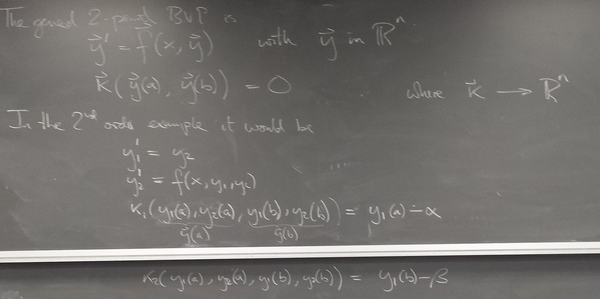 The general 2-point BVP is
y⃗' = f⃗(x, y⃗) with y⃗ in ℝⁿ
k⃗(y⃗(a), y⃗(b)) = 0 where k⃗ → ℝⁿ
In the 2nd order example it would be
y₁' = y₂
y₂' = f(x, y₁, y₂)
k₁(y₁(a), y₂(a), y₁(b), y₂(b)) = y₁(a) - α
y⃗(a) y⃗(b)
k₂(y₁(a), y₂(a), y₁(b), y₂(b)) = y₁(b) - β